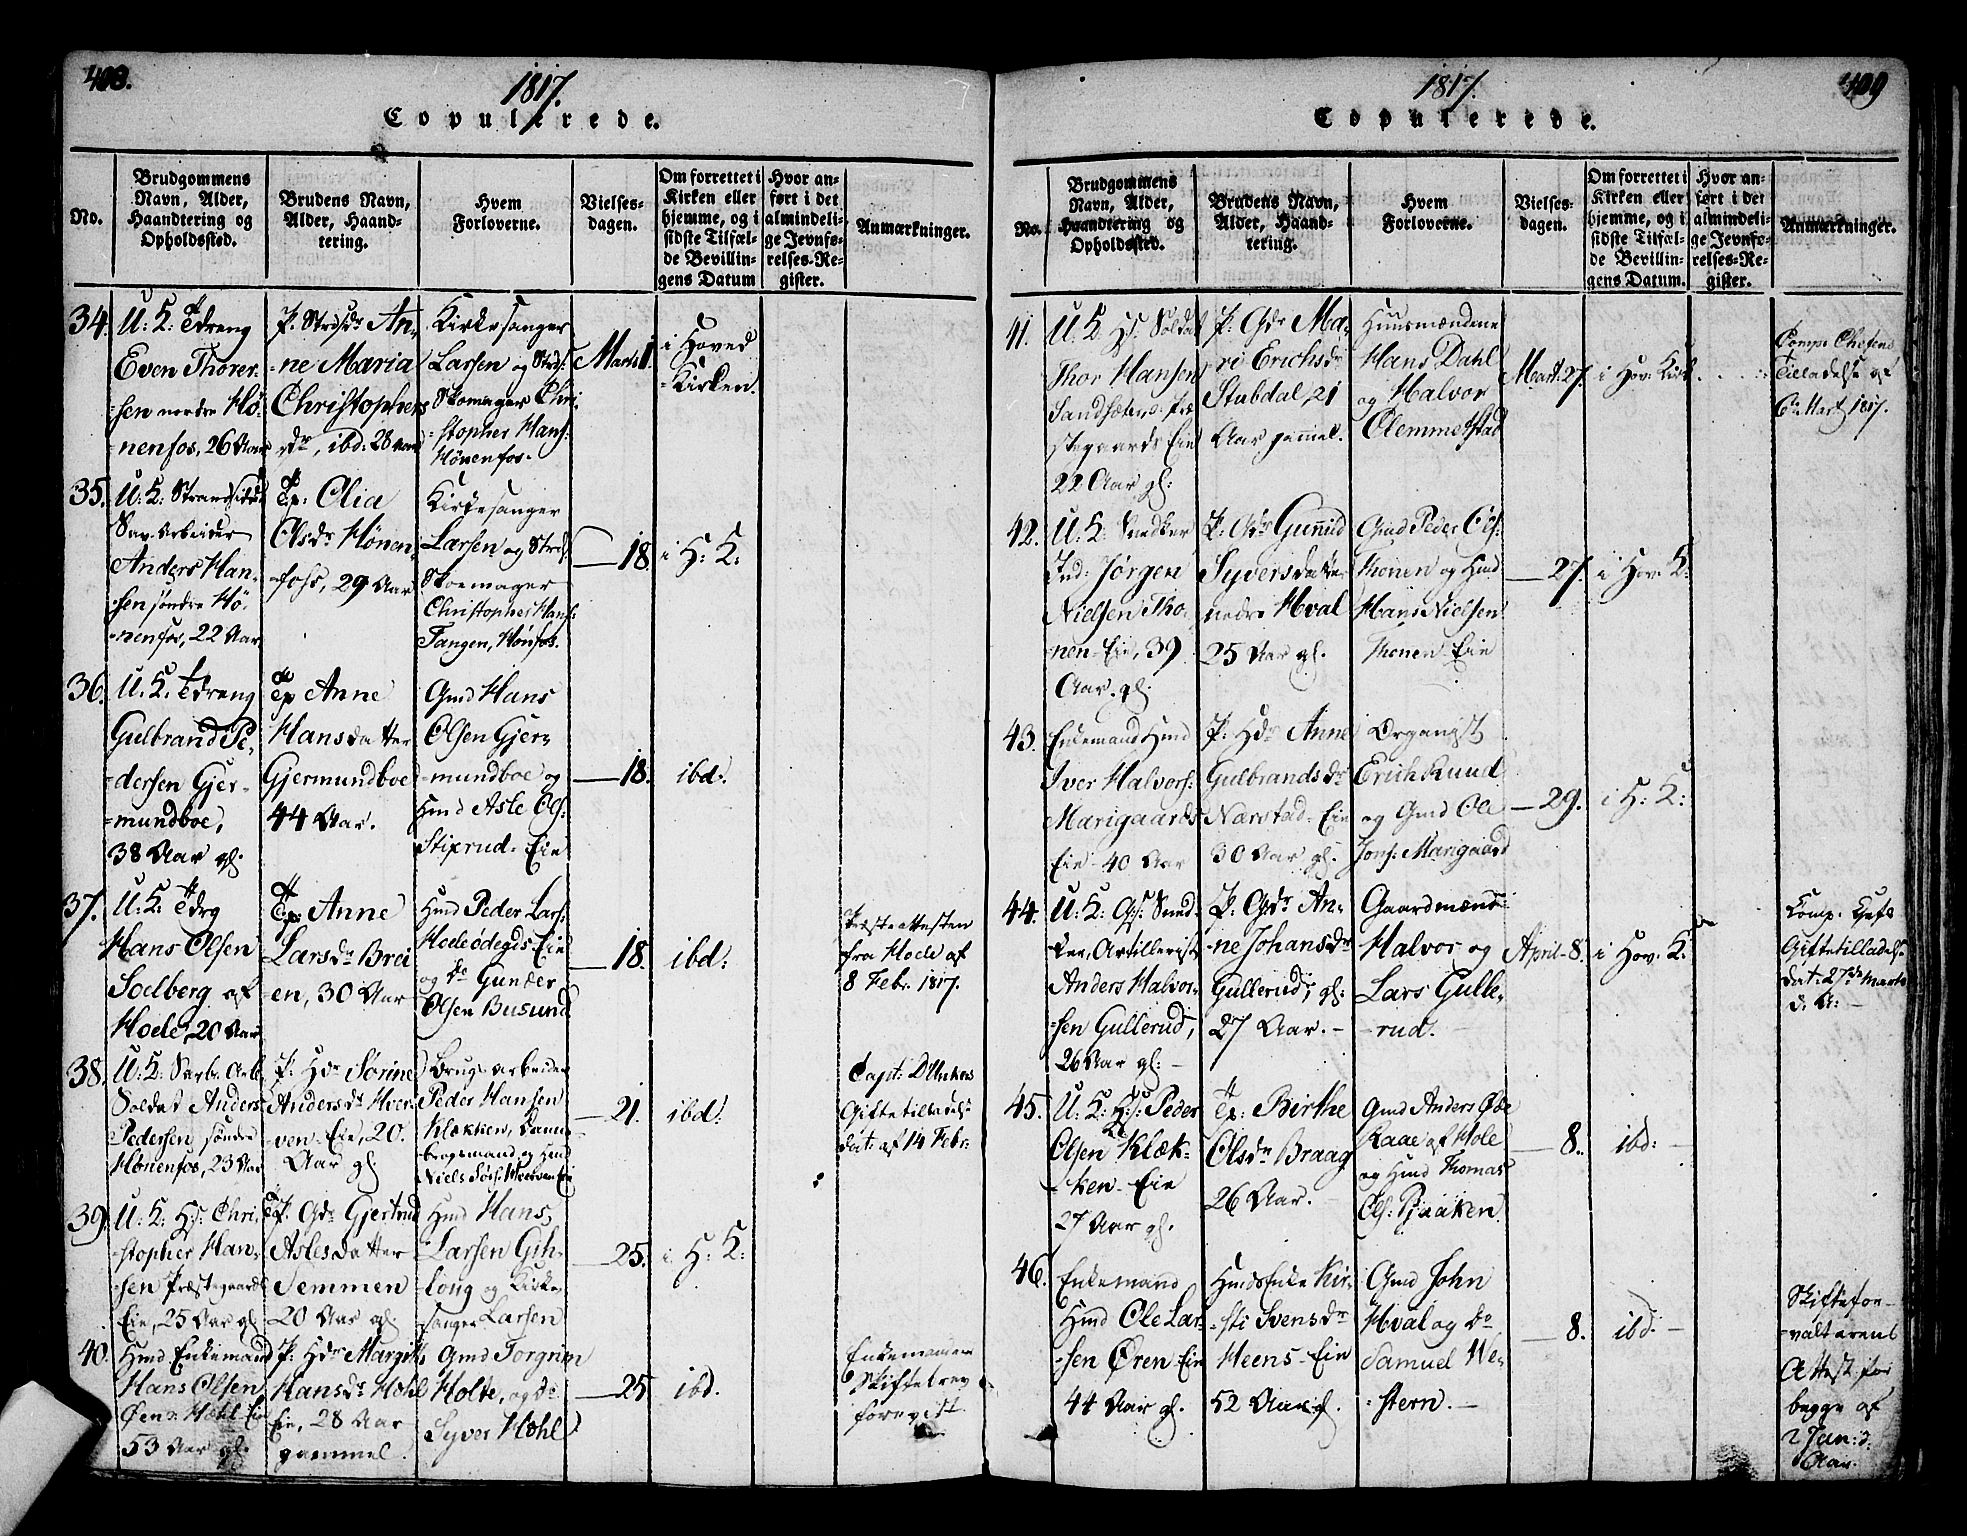 408.
1817.
Copulerede.
No.
Brudgommens Navn, Alder, Haandtering og Opholdssted.
Brudens Navn, Alder, Haandtering.
Hvem Forloverne.
Vielsesdagen.
Om forrettet i Kirken eller hjemme, og i sidste Tilfælde Bevillingens Datum
Hvor anført i det almindelige Jevnførelses-Register.
Anmærkninger.
34.
U: K: Tdreng
Even Thorer-
-sen nordre Hø-
-nenfos, 26 Aar
P. Strds: dr An-
-ne Maria
Christophers
dr, ibd: 28 Aar
Kirkesanger
Larsen og Strds:
Skomager Chri-
-stopher Hans:
Hønenfos.
Marts 11
i Hoved
-Kirken.
35.
U: K: Strandsidder
Sav-Arbeider
Anders Han-
-sen søndre Hø-
-nenfos, 22 Aar
Tp: Olia
Olsdr Hønen-
-fohs, 29 Aar
Kirkesanger
Larsen og Strds:
Skoemager
Christopher Hans:
Tangen, Hønfos.
— 18.
i H: K:
36.
U. K. Tdreng
Gulbrand Pe-
-dersen Gjer-
-mundboe,
38 Aar gl.
Tp Anne
Hansdatter
Gjermundboe
44 Aar.
Gmd Hans
Olsen Gjer-
-mundboe og
Hmd Asle Ols:
Stixrud-Eie
— 18.
ibd:
37.
U: K: Tdrg
Hans Olsen
Soelberg af
Hole, 20 Aar
Tp: Anne
Larsdr Brei
-en, 30 Aar
Hmd Peder Lars:
Hoeleødegds Eie
og do Gunder
Olsen Busund
— 18.
ibd:
Præsteattesten
fra Hole af
8 Febr. 1817.
38.
U: K: Sarb. Arb.
Soldat Anders
Pedersen søndre
Hønenfos, 23 Aar
P. Hdr Sørine
Andersdr Hver-
ven-Eie, 20.
Aar gl.
Brugs-arbeider
Peder Hansen
Klækken, Danne-
-brogsmand og Hmd
Niels Sørs: Hverven Eie
— 21.
ibd:
Capt: D Unkers
Giftetilladels:
dat: af 14 Febr:
39.
U: K: H:s: Chri-
-stopher Han-
-sen Præstegaards
Eie, 25 Aar gl.
Tp. Gdr Gjertrud
Aslesdatter
Semmen
20 Aar gl.
Hmd Hans
Larsen Gih-
-long og Kirke-
sanger Larsen
— 25.
i H: K:
40.
Hmd Enkemand
Hans Olsen
Øen-Hæhl-Eie
53 Aar gl.
P: Hdr Margith
Hansdr Hæhl
Eie, 28 Aar
gammel.
Gmd Torgrim
Holte, og do
Syver Hæhl
— 25
ibd.
Enkemandens
Skiftebrev
forevist

409
1817.
Copulerede.
No.
Brudgommens Navn, Alder, Haandtering og Opholdssted.
Brudens Navn, Alder, Haandtering.
Hvem Forloverne.
Vielsesdagen.
Om forrettet i Kirken eller hjemme, og i sidste Tilfælde Bevillingens Datum.
Hvor anført i det almindelige Jevnførelses-Register.
Anmærkninger.
41.
U: K Hs: Soldat
Thor Hansen
Sandsæteno Præ-
stegaards Eie
22 Aar gl:
P: Gdr Ma-
-ri Erichsdr
Stubdal, 21
Aar gammel.
Huusmændene
Hans Dahl
og Halvor
Clemmetstad
Mart: 27.
i Hov: Kirk.
Comp: Chefens
Tilladelse af
6te Mart 1817.
42.
U: K: Snedker
Ind: Jørgen
Nielsen Tho-
-nen-Eie, 39
Aar. gl.
P: Gdr Gunnild
Syversdatter
nedre Hval
25 Aar gl.
Gmd Peder Ols:
Thonen og Hmd
Hans Nielsen
Thonen-Eie
— 27.
i Hov: K:
43.
Enkemand Hmd
Iver Halvors:
Marigaards-
Eie-40 Aar
P: Hdr Anne
Gulbrandsdr
Narstad-Eie
30 Aar gl.
Organist
Erich Ruud
og Gmd Ole
Jons: Marigaard
— 29.
i H: K:
44.
U: K: Gs: Sned-
ker, Artillerist
Anders Halvor-
-sen Gullerud,
26 Aar gl: —
P. Gdr An-
-ne Johansdr
Gullerud, gl:
27 Aar. —
Gaardmænd:
Halvor og
Lars Gulle-
-rud.
April-8.
i Hov. K:
Komp. Chefs
Giftetilladels:
dat: 27de Marts
d: A: —
45.
U: K: H:s: Peder
Olsen Klæk-
-ken-Eie
27 Aar gl.
Tp: Birthe
Olsdr Braag
26 Aar.
Gmd Anders Øde
Raae af Hole
og Hmd Thomas
Ols: Pjaaken
— 8.
ibd: —
46.
Enkemand
Hmd Ole Lar-
-sen Øren-Eie
44 Aar gl.
HmdsEnke Kir-
-sti Svensdr
Heens-Eie
52 Aar gl.
Gmd John
Hval og do
Samuel We-
-stern. —
— 8.
ibd. —
Skiftefor-
-valterens
Attest for
begge af
2 Jan: d.
Aar.